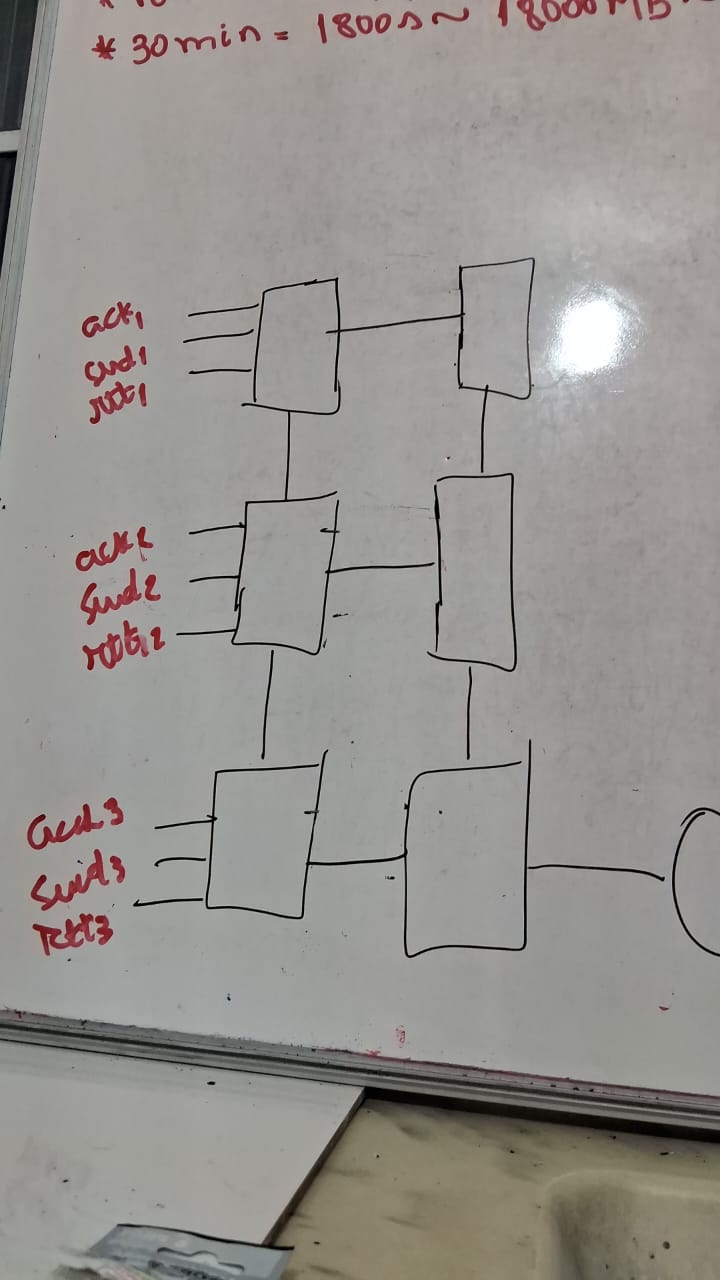 * 30min = 1800s ~ 18000MB
ack1
swd1
rtt1
ack2
swd2
rtt2
ack3
swd3
rtt3